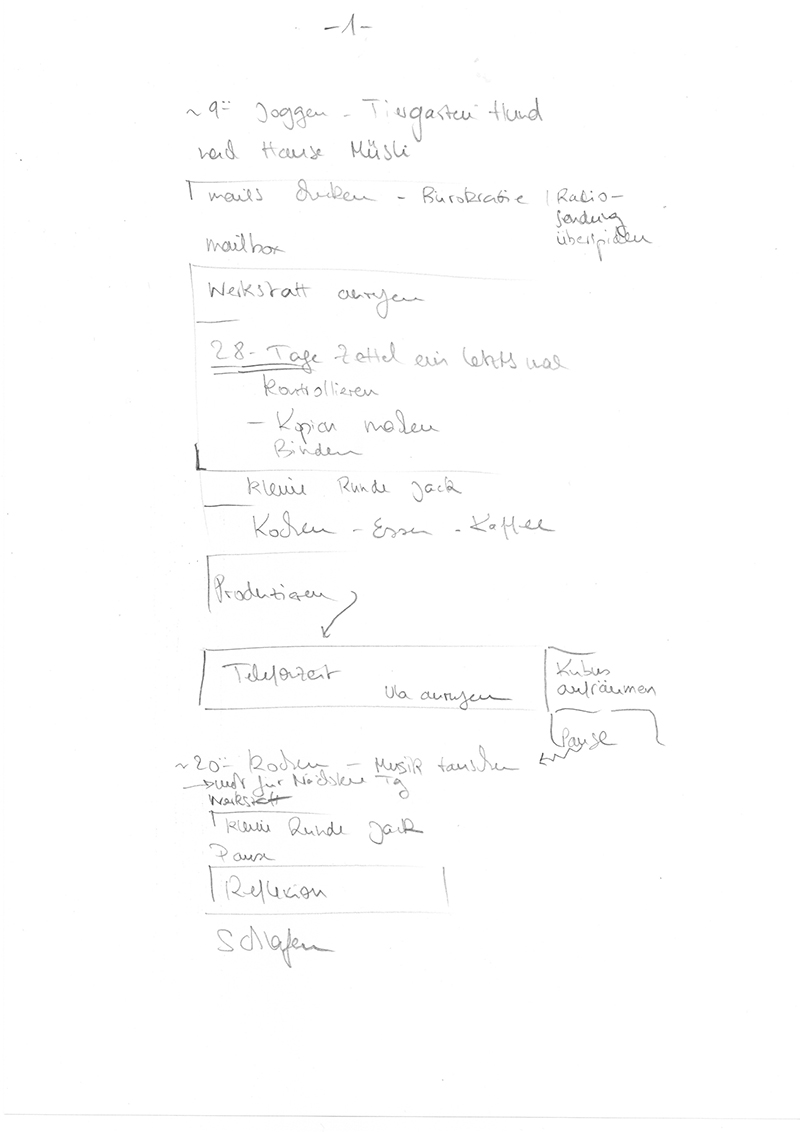 -1-
~ 9:00 Joggen - Tiergarten Hund
nach Hause Müsli
mails checken - Bürokratie
Radio-
sendung
überspielen
mailbox
Werkstatt anrufen
28-Tage Zettel ein letztes mal
kontrollieren
- Kopien machen
Binden
kleine Runde Jack
Kochen - Essen - Kaffee
Produzieren
Telefonzeit
Ula anrufen
Kubus
aufräumen
Pause
~20:00 Kochen - Musik tauschen
für Nächsten Tg
Werkstatt
kleine Runde Jack
Pause
Reflexion
Schlafen